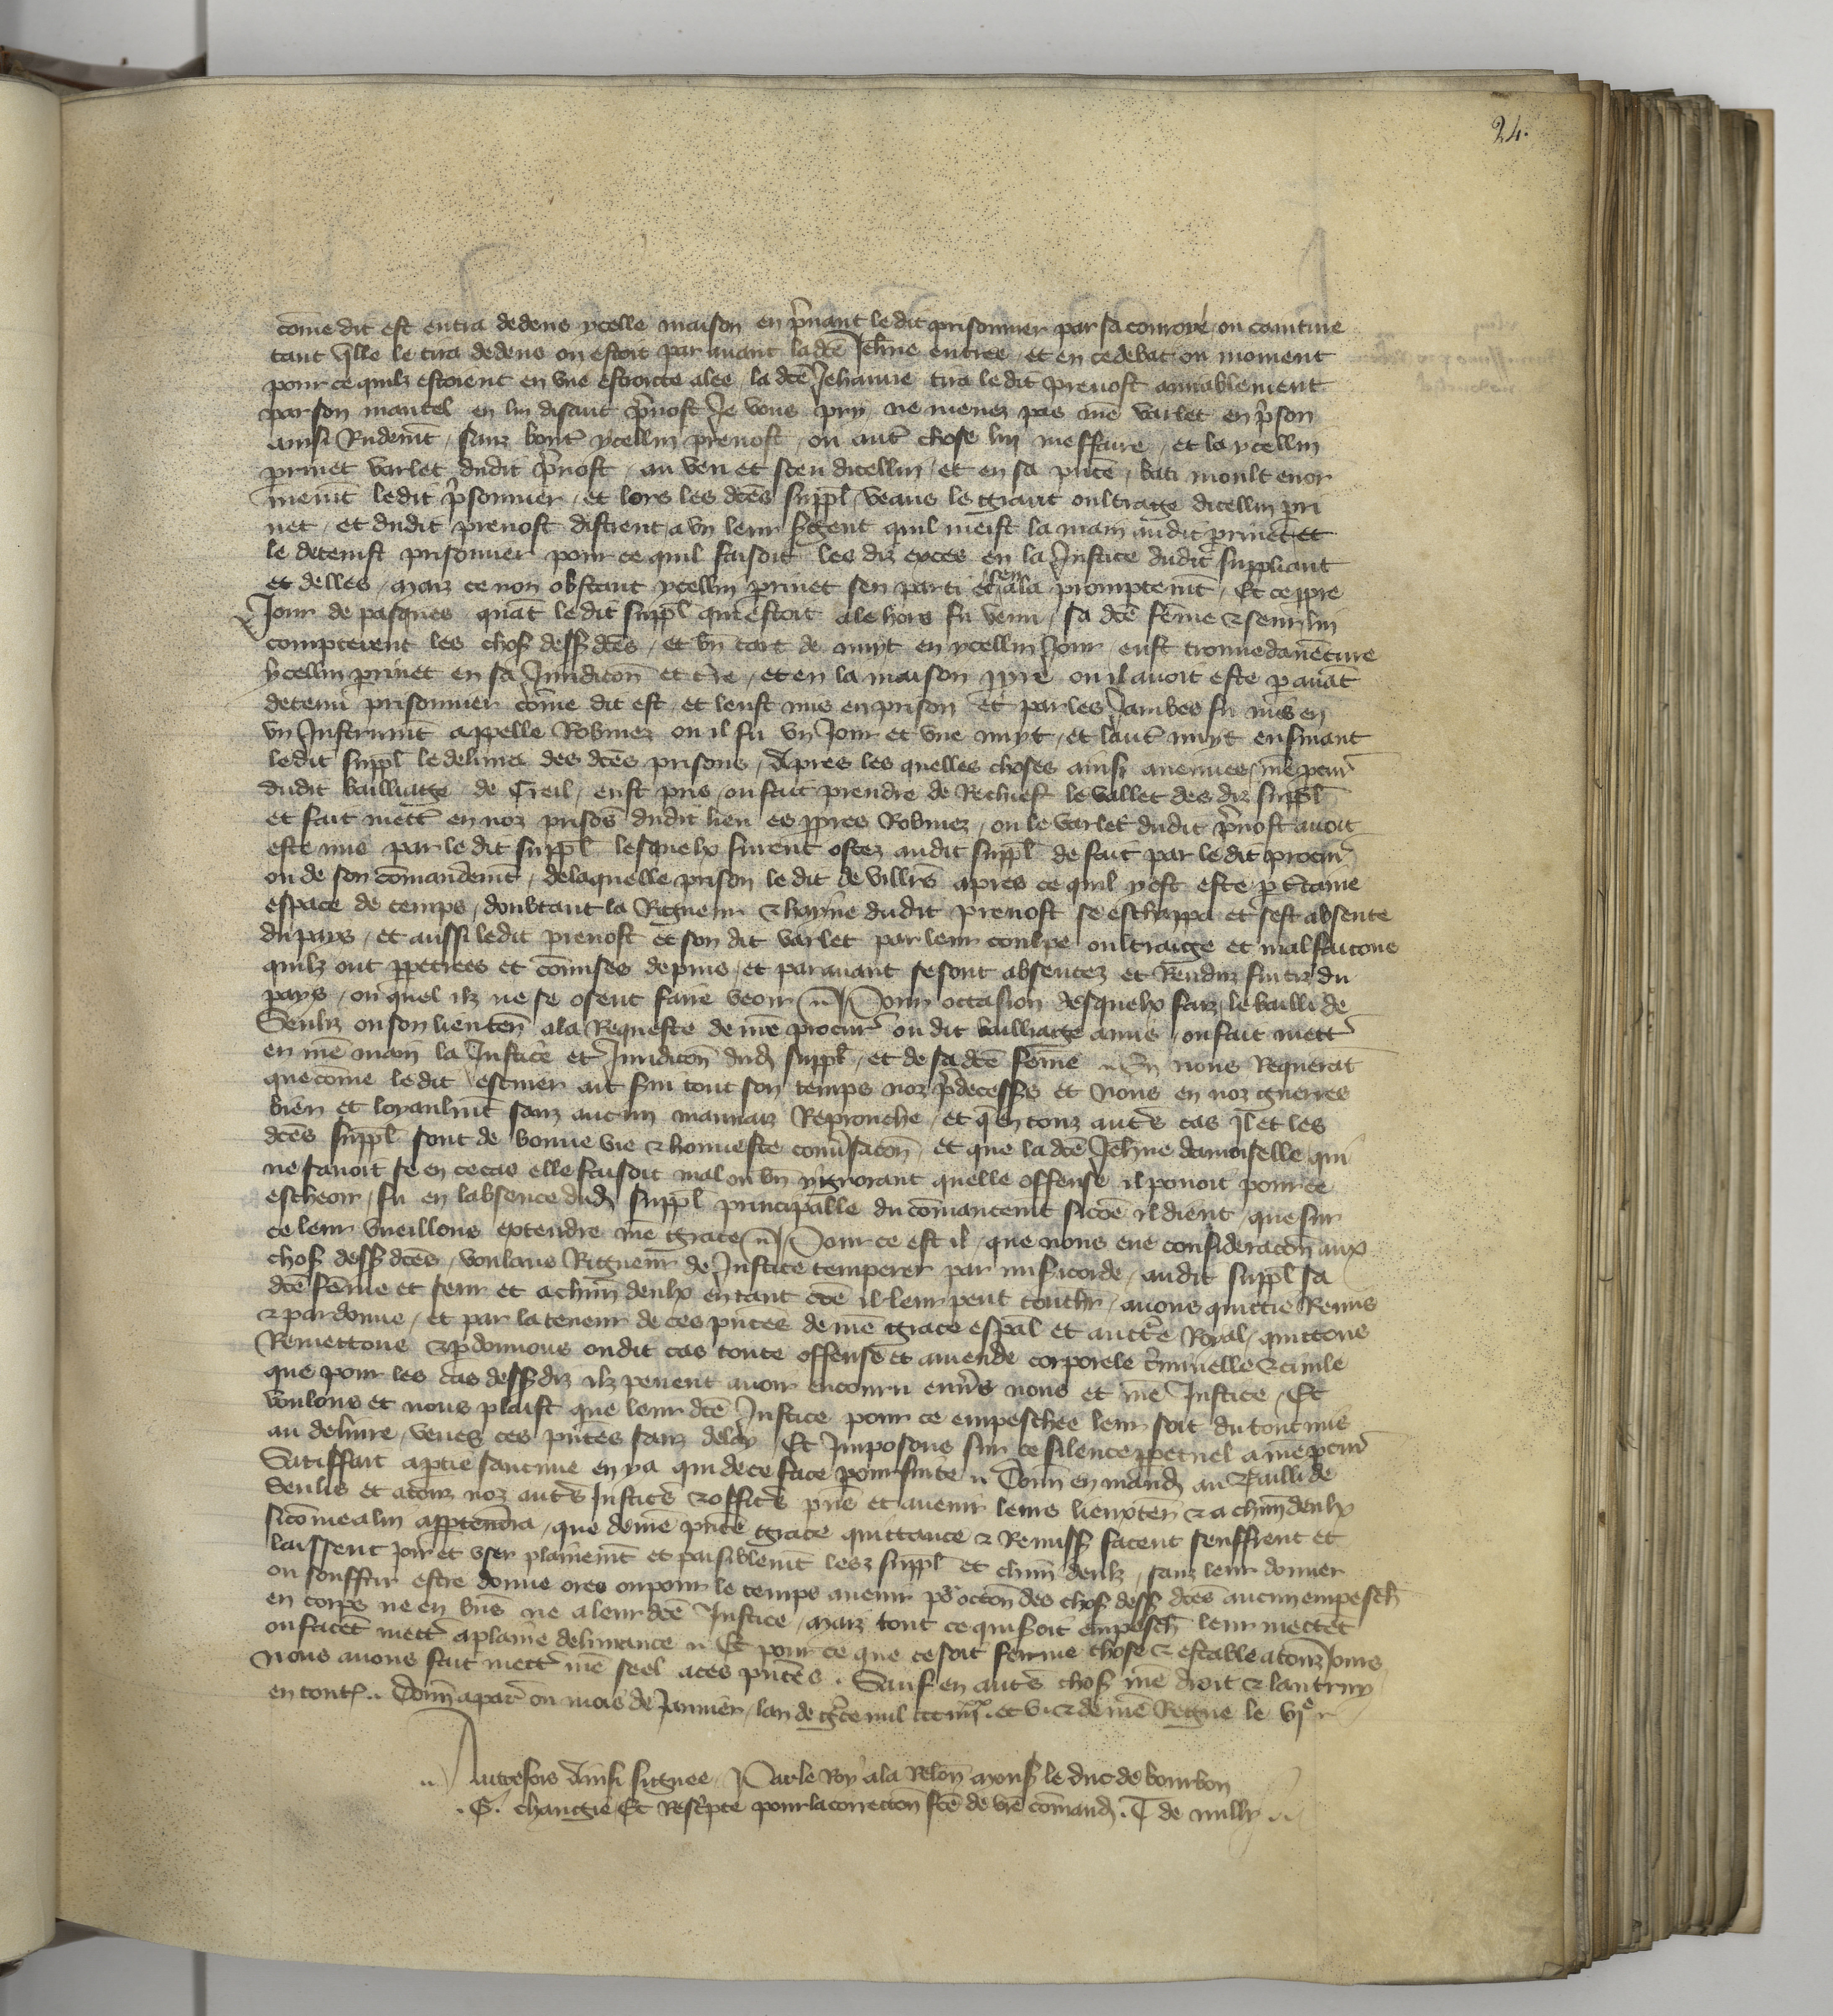 24.
come dit est entra dedens ycelle maison en p̃nant ledit prisonnier par sa conroye ou cainture
tant q̃lle le tira dedens ou estoit par auant lad̃ce Jeh̃ne entree, et en ce debat ou moment
pour ce quilz estoient en vne estroicte alee, la d̃ce Jehanne tira ledit preuost amiablement
par son mantel en lui disant p̃uost Je vous pry ne menez pas mõ varlet en p̃son
ainsi Rudemẽt, sanz bout̃ ycellui preuost, ou aut̃ chose lui meffaire, et la ycellui
priuet varlet dudit p̃uost, au veu et sceu dicellui, et en sa p̃nce, bati moult enor
mem̃t ledit p̃sonnier, et lors les d̃ces suppl̃, veans le grant oultrage dicellui pri
uet, et dudit preuost distrent a vn leur s̃gent quil meist la main audit priuet et
le detenist prisonnier pour ce quil faisoit les diz exces en la Justice dudit suppliant
et delles, Maiz ce non obstant ycellui priuet sen parti et sen ala promptem̃t, Et ce ppre
Jour de pasques quãt ledit suppl̃ qui estoit ale hors fu venu, sa d̃ce fẽme & seur lui
compterent les chos̃ dess̃ d̃ces, et vn tart de nuyt en ycellui Jour, eust trouue dauẽture
ycellui priuet en sa Juridicõn et t̃re, et en la maison ppre ou il auoit este p auãt
detenu prisonnier cõme dit est, et leust mis en prison et par les Jambes fu mis en
vn Instrumẽt appelle Robinez ou il fu vn Jour et vne nuyt, et laut̃ nuyt ensiuant
ledit suppl̃ le deliura des d̃ces prisons, Apres les quelles choses ainsi auenues, nr̃e p̃cur̃
dudit bailliage de Creil, eust pris, ou fait prendre de Rechief le vallet des diz suppl̃
et fait mett̃ en noz prisõs dudit lieu es ppres Robinez, ou le varlet dudit p̃uost auoit
este mis par le dit suppl̃ lesquelx furent ostez audit suppl̃ de fait par le dit procur̃
ou de son cõmandem̃t, delaquelle prison le dit de villr̃s apres ce quil y ost este p c̃taine
espace de temps, doubtant la Rigueur & hayne dudit preuost se eschappa et sest absente
du pays, et aussi ledit preuost et son dit varlet par leur coulpe oultraige et mal facons
quilz ont ppetrees et cõmises depuis, et parauant se sont absentez et Renduz fuitiz du
pays, ou quel ilz ne se osent faire veoir Pour occasion desquelx faiz, le bailli de
Senliz ou son lieuteñ ala Requeste de nr̃e procur̃ ou dit bailliage a mis, ou fait mett̃
en nr̃e main la Justice et Juridicõn dud̃ suppl̃, et de sa d̃ce fẽme En nous Requerãt
que cõme le dit escuier ait serui tout son temps noz p̃decess̃s et Nous en noz guerres
bien et loyaulm̃t sanz aucun mauuaiz Reprouche, et q̃ en touz aut̃s cas il et les
d̃ces suppl̃ sont de bonne vie & honneste conũsacõn, et que la d̃ce Jeh̃ne damoiselle qui
ne sauoit se en ce cas elle faisoit mal ou bñ ygnorant quelle offense il pouoit pour ce
escheoir, fu en labsence dud̃ suppl̃ principalle du cõmancem̃t sicõe il dient, que sur
ce leur vueillons extendre nr̃e grace Pour ce est il, que nous eue consideracõn aux
chos̃ dess̃ d̃ces, voulans Rigueur de Justice temperer par mis̃icorde, audit suppl̃ sa
d̃ce fẽme et seur et a chũn deulx en tant cõe il leur peut touch̃r, auons quictie Remis
& pardonne, et par la teneur de ces p̃ntes de nr̃e grace esp̃al et auct̃e Royal, quictons
Remettons & pdonnons ou dit cas toute offense et amende corporele c̃minelle & ciuile
que pour les cas dess̃ diz ilz peuent auoir encouru enũs nous et nr̃e Justice, Et
voulons et nous plaist que leur d̃ce Justice pour ce empeschee leur soit du tout mis
au deliure, veues ces p̃ntes sanz delay Et Imposons sur ce silence ppetuel a nr̃e p̃cur̃
Satiffait a ptie saucune en ya qui de ce face pour suite Donñ en mand̃ au Bailli de
Senlis et a touz noz aut̃s Justic̃s & offic̃s p̃ns et auenir leurs lieuxteñ & a chũn deulx
sicõme a lui apptendra, que de nr̃e p̃nte grace quittance & Remiss̃ facent seuffrent et
laissent joir et vser plainem̃t et paisiblem̃t lesz suppl̃ et chũn deulx, sanz leur donner
ou souffrir estre donne ores ou pour le temps auenir po occõn des chos̃ dess̃ d̃ces aucun empesch̃
en corps ne en biẽs ne a leur d̃ce Justice, Maiz tout ce qui soit empesch̃ leur mettẽt
ou facẽt mett̃ a plaine deliurance Et pour ce que ce soit ferme chose & estable a touz Jours
Nous auons fait mett̃ nr̃e seel a ces p̃ntes. Sauf en aut̃s chos̃ nr̃e droit & lautruy
en tout̃. Donñ a par̃ ou mois de Januier, lan de gr̃ce mil ccc iiiixx. et v. & de nr̃e Regne le vje
Autresfois Ainsi signee Parle Roy ala Relõn Mons̃ le duc de bourbon
.G. changie Et Resc̃pte pour la correction fc̃e de vr̃e cõmand̃. T de nully